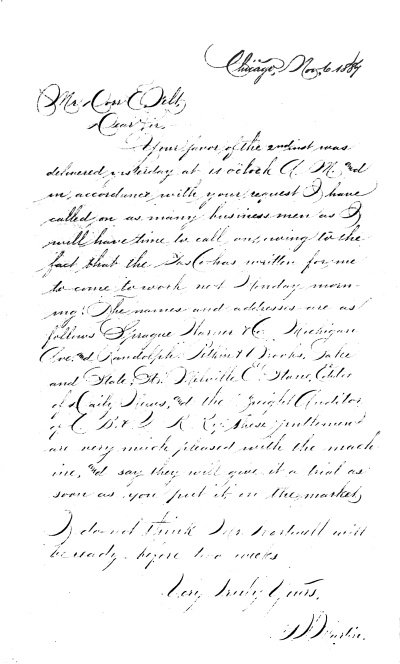 Chicago, Nov. 6 1889
Mr. Dorr E. Felt,
Dear Sir.
Your favor of the 2nd inst was
delivered yesterday at 11 o'clock A. M. and
in accordance with your request I have
called on as many business men as I
will have time to call on, owing to the
fact that the Gas Co has written for me
to come to work next Monday morn-
ing. The names and addresses are as
follows Sprague Warner & Co. Michigan
Ave. & Randolph. Pitkin & Brooks, Lake
and State, Sts. Melville E. Stone, Editor
of Daily News, and the Freight Auditor
of C. B. & Q. R. Ry. These gentlemen
are very much pleased with the mach
ine, and say they will give it a trial as
soon as you put it in the market,
I do not think Mr. will
be ready before two weeks
Very Truly Yours,